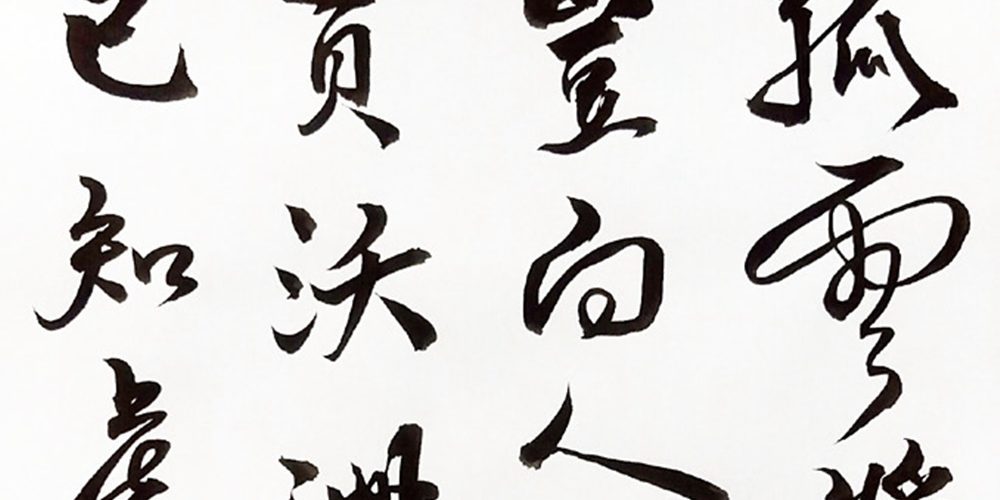 孤雲將
豈向人
買沃洲
已知處